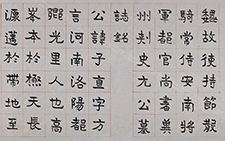 魏故使持節散
騎常侍安南將
軍都官尚書冀
州刺史元公墓
誌銘
公諱子直字方
言河南洛陽
光里人也高
岑本於極天長
於帶地至